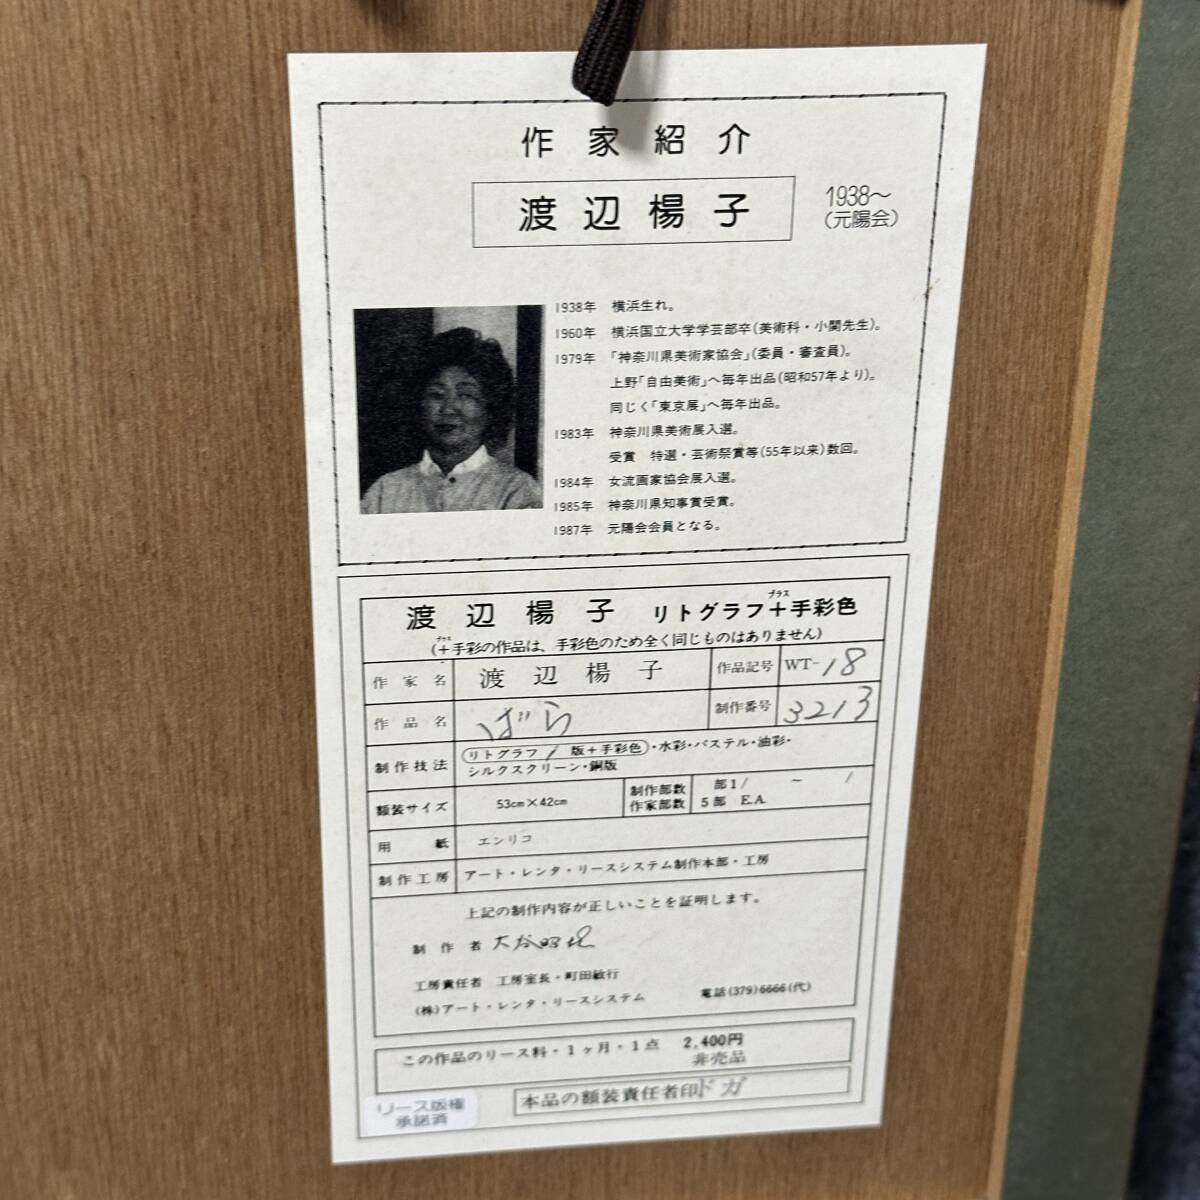 作家紹介
渡辺楊子
1938〜
(元陽会)
1938年 横浜生れ。
1960年 横浜国立大学学芸部卒(美術科・小関先生)。
1979年 「神奈川県美術家協会」(委員・審査員)。
上野「自由美術」へ毎年出品(昭和57年より)。
同じく「東京展」へ毎年出品。
1983年 神奈川県美術展入選。
受賞 特選・芸術祭賞等(55年以来)数回。
1984年 女流画家協会展入選。
1985年 神奈川県知事賞受賞。
1987年 元陽会会員となる。
プラス
渡辺楊子 リトグラフ+手彩色
プラス
(+手彩の作品は、手彩色のため全く同じものはありません)
作家名 渡辺楊子 作品記号 WT-18
作品名 ばら 制作番号 3213
制作技法 リトグラフ 1 版+手彩色・水彩・パステル・油彩・
シルクスクリーン・銅版
額装サイズ 53cm×42cm 制作部数 部1/ 〜 /
作家部数 5部 E.A.
用紙 エンリコ
制作工房 アート・レンタ・リースシステム制作本部・工房
上記の制作内容が正しいことを証明します。
制作者
工房責任者 工房室長・町田敏行
(株)アート・レンタ・リースシステム 電話(379)6666(代)
この作品のリース料・1ヶ月・1点 2,400円
非売品
本品の額装責任者印 ドガ
リース版権
承諾済